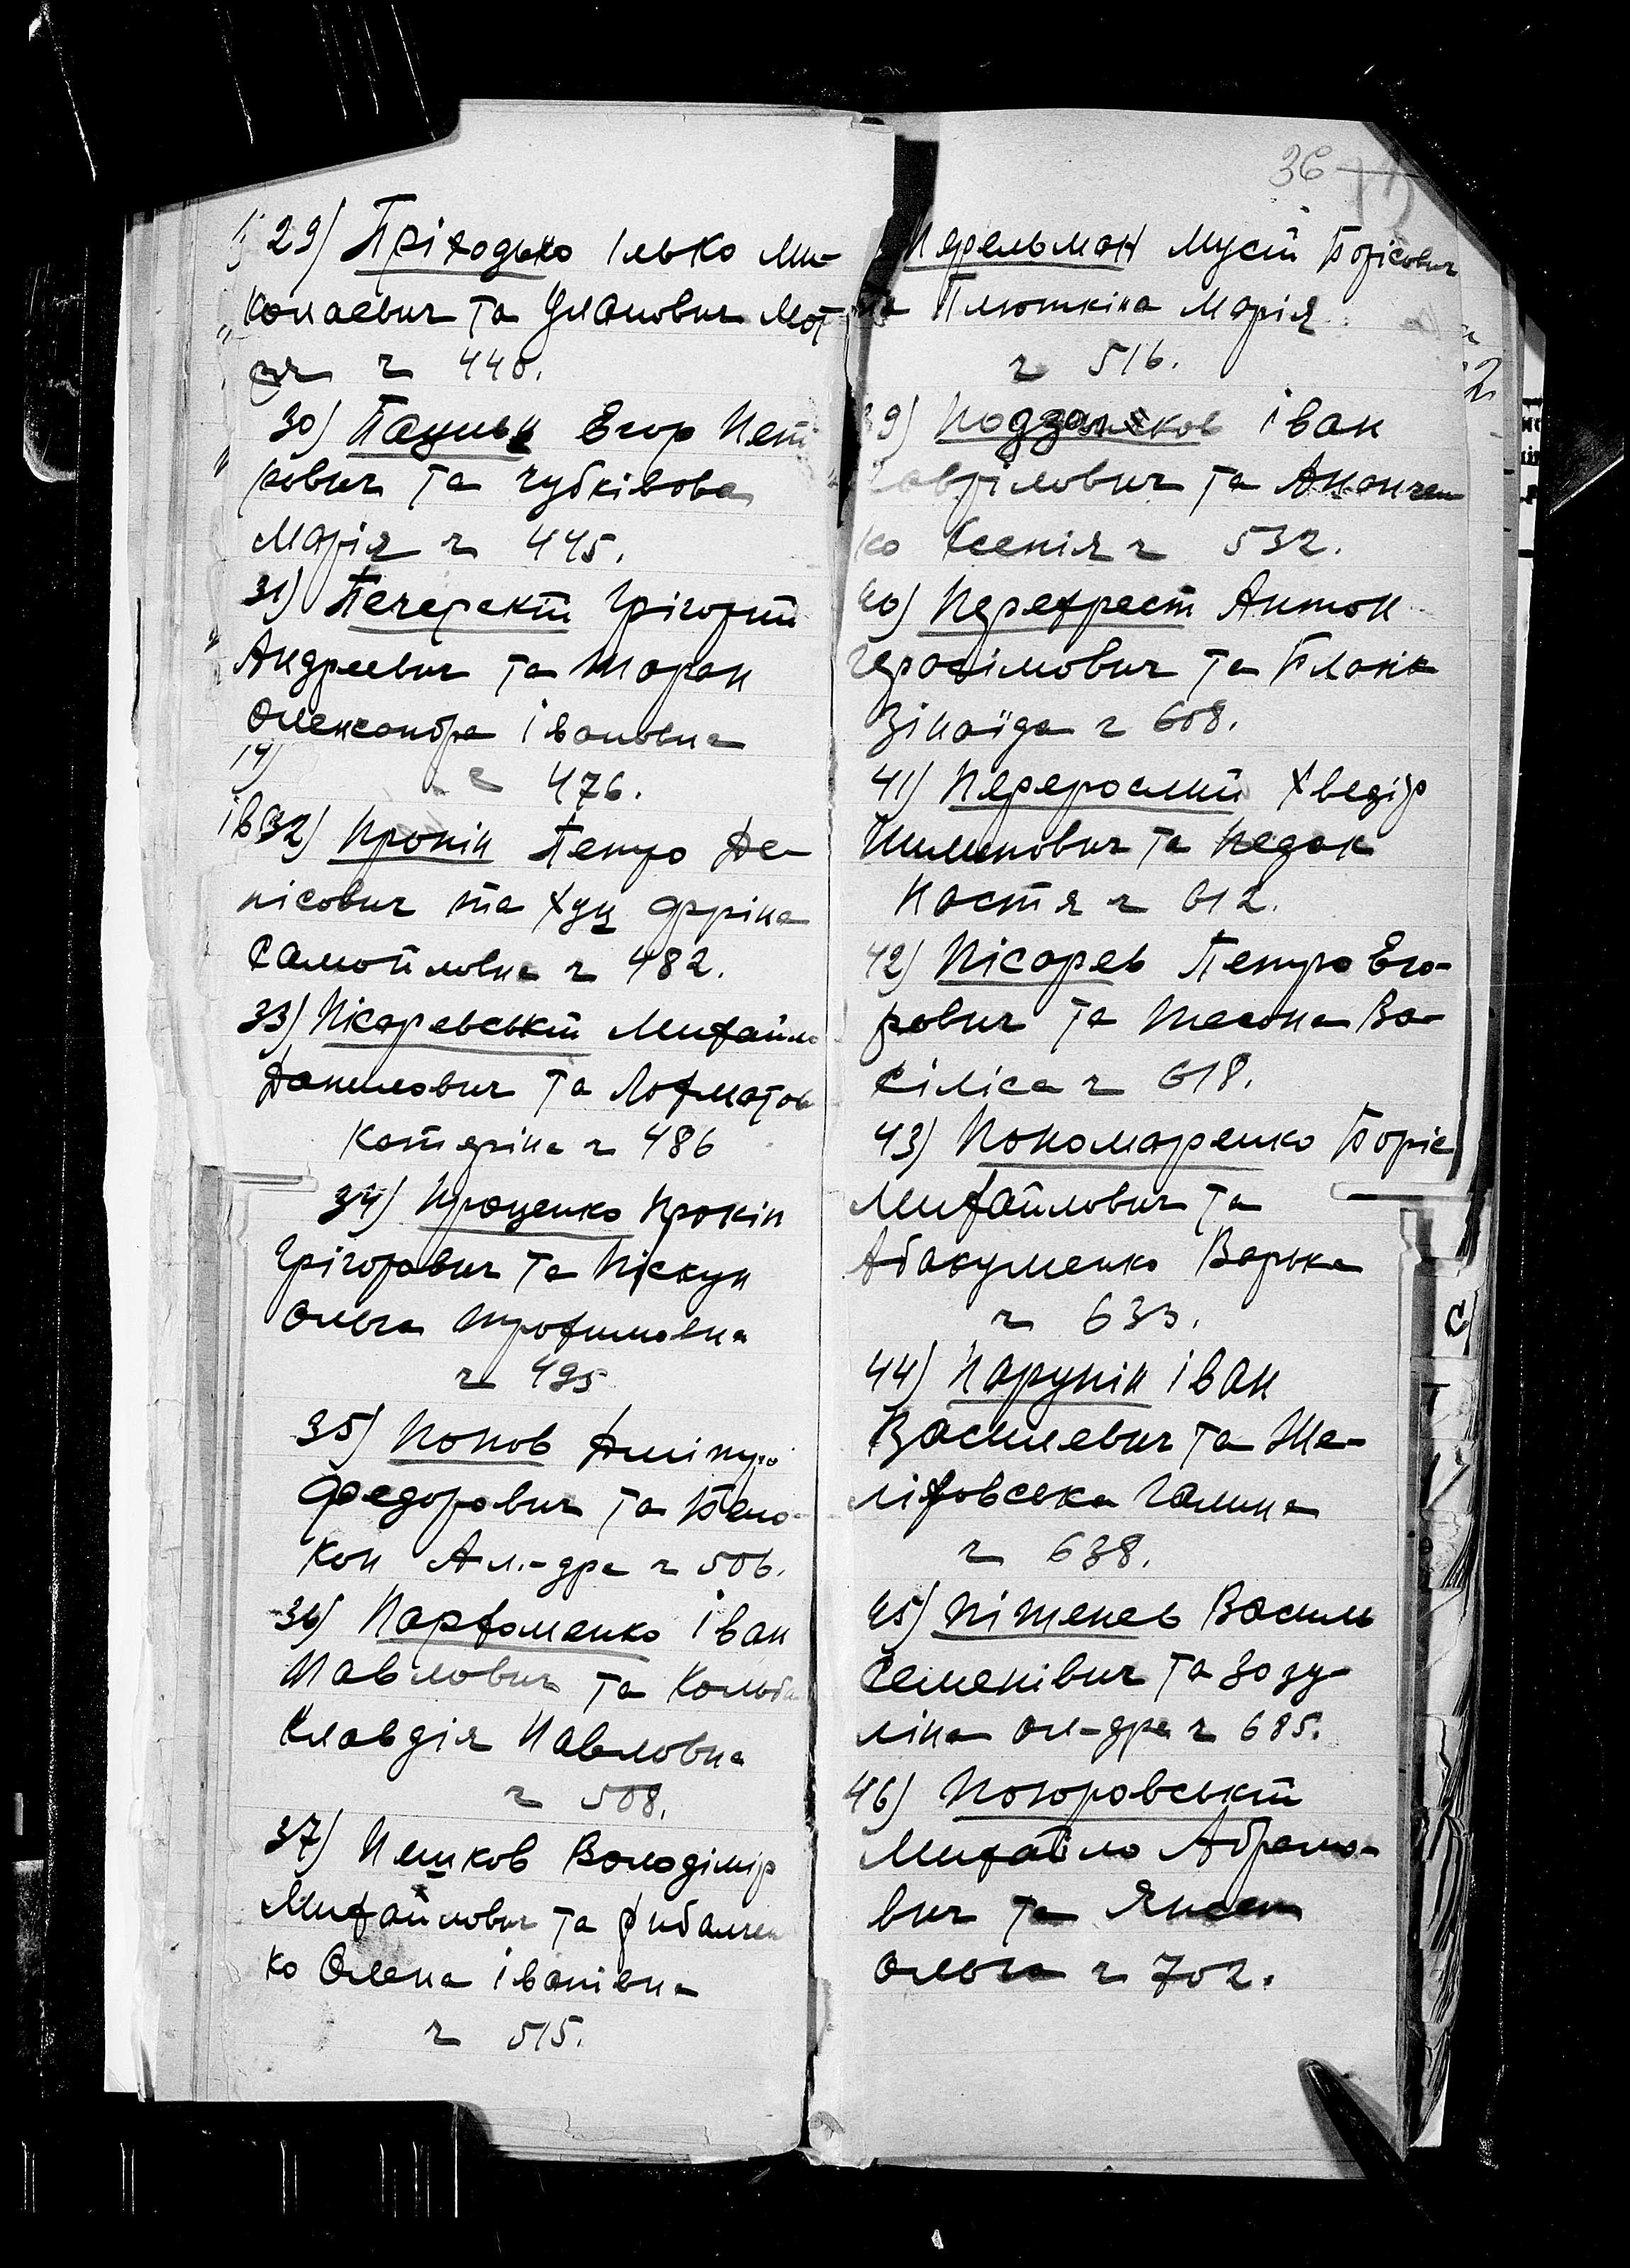 29) Пріходько Ілько Ми-
колаевич та Уманович Мот
ря ч 440.
30) Пацюк Егор Пет
рович та Чубківова
Марія ч 445.
31) Печерскій Грігорій
Андреевич та Таран
Олександра Івановна
ч 476.
32) Пронін Петро Де-
нісович та Хуц Фріна
Самойловна ч 482.
33) Пісаревський Михайло
Данилович та Лохматов
Катеріна ч 486
34) Проценко Прокіп
Грігорович та Піскун
Ольга Трохимовна
ч 495
35) Попов Дмітро
Федорович та Бело-
кон Ал.-дра ч 506.
36) Пархоменко Іван
Павлович та Колюба
Клавдія Павловна
ч 508.
37) Пешков Володімір
Михайлович та Рибалчен
ко Олена Іванівна
ч 515.
36
Перельман Мусій Борісович
та Плюткіна Марія
ч 516.
39) Іван
Гаврілович та Ананчен
ко Ксенія ч 532.
40) Перехрест Антон
Герасімович та Бланк
Зінаїда ч 608.
41) Перерослий Хведір
Пилипович та Педак
Настя ч 612.
42) Пісарев Петро Его-
рович та Тесона Ва-
сіліса ч 618.
43) Пономаренко Боріс
Михайлович та
Абакуменко Варька
ч 633.
44) Парунін Іван
Василевич та Ше-
ліховська Галина
ч 638.
45) Пітенев Василь
Семенівич та Зозу-
ліна Ол-дра ч 685.
46) Погоровський
Михайло Абрамо-
вич та
Ольга ч 702.